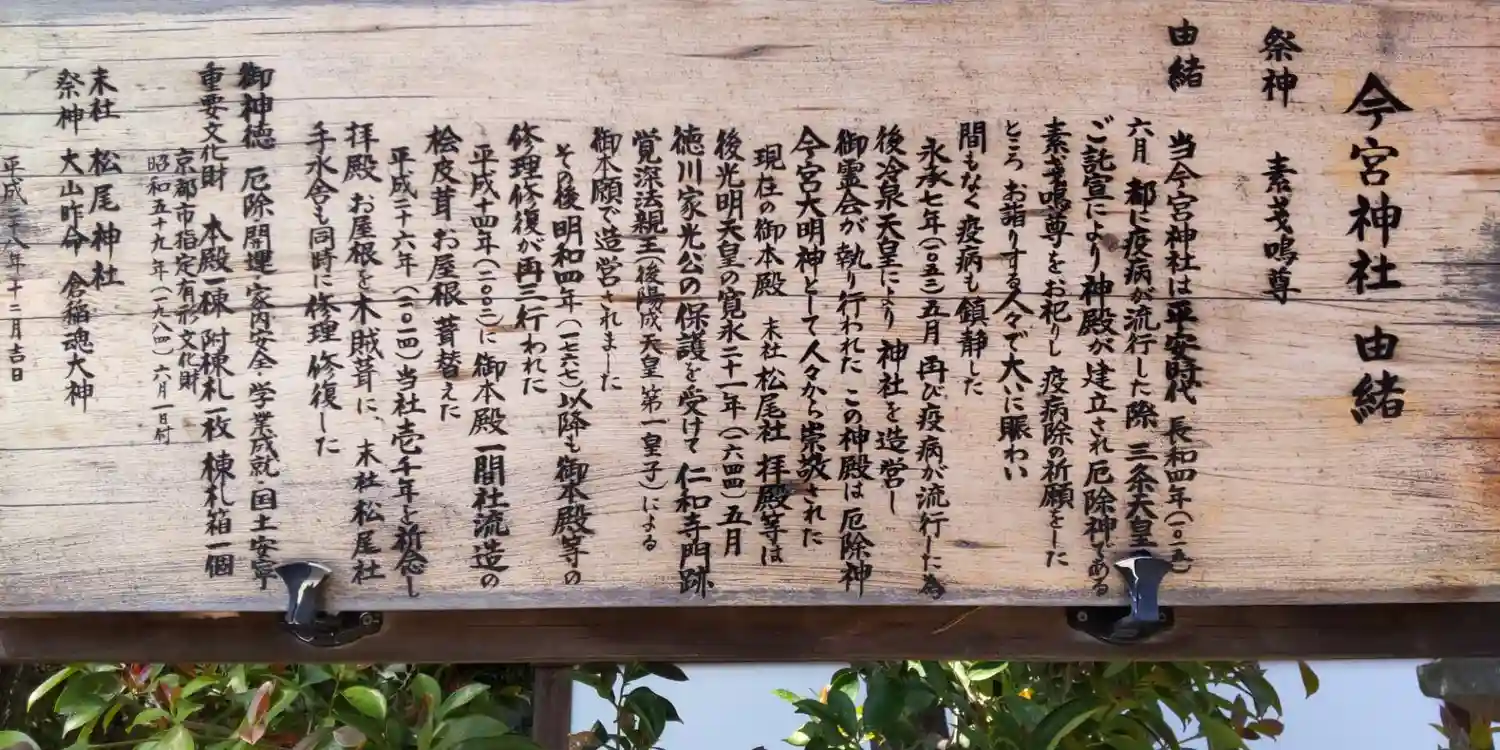 今宮神社 由緒
祭神 素戔鳴尊
由緒
当今宮神社は平安時代 長和四年(一〇一五)
六月 都に疫病が流行した際 三条天皇
ご託宣により 神殿が建立され 厄除神である
素戔鳴尊をお祀りし 疫病除の祈願をした
ところ お詣りする人々で大いに賑わい
間もなく疫病も鎮静した
永承七年(一〇五二)五月 再び疫病が流行した為
後冷泉天皇により 神社を造営し
御霊会が執り行われた この神殿は厄除神
今宮大明神として人々から崇敬された
現在の御本殿 末社松尾社 拝殿等は
後光明天皇の寛永二十一年(一六四四)五月
徳川家光公の保護を受けて 仁和寺門跡
覚深法親王(後陽成天皇 第一皇子)による
御本願で造営されました
その後明和四年(一七六七)以降も御本殿等の
修理修復が再三行われた
平成十四年(二〇〇二)に 御本殿 一間社流造の
桧皮葺お屋根 葺替えた
平成二十六年(二〇一四)当社壱千年を祈念し
拝殿 お屋根を木賊葺に、末社松尾社
手水舎も同時に修理 修復した
御神徳 厄除開運・家内安全・学業成就・国土安寧
重要文化財 本殿一棟 附棟札一枚 棟札箱一個
京都市指定有形文化財
昭和五十九年(一九八四)六月一日付
末社 松尾神社
祭神 大山咋命 倉稲魂大神
平成二十八年十二月吉日